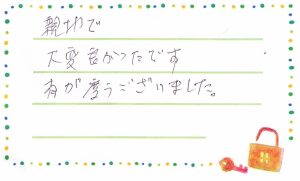 親切で
大変良かったです
有が度うございました。